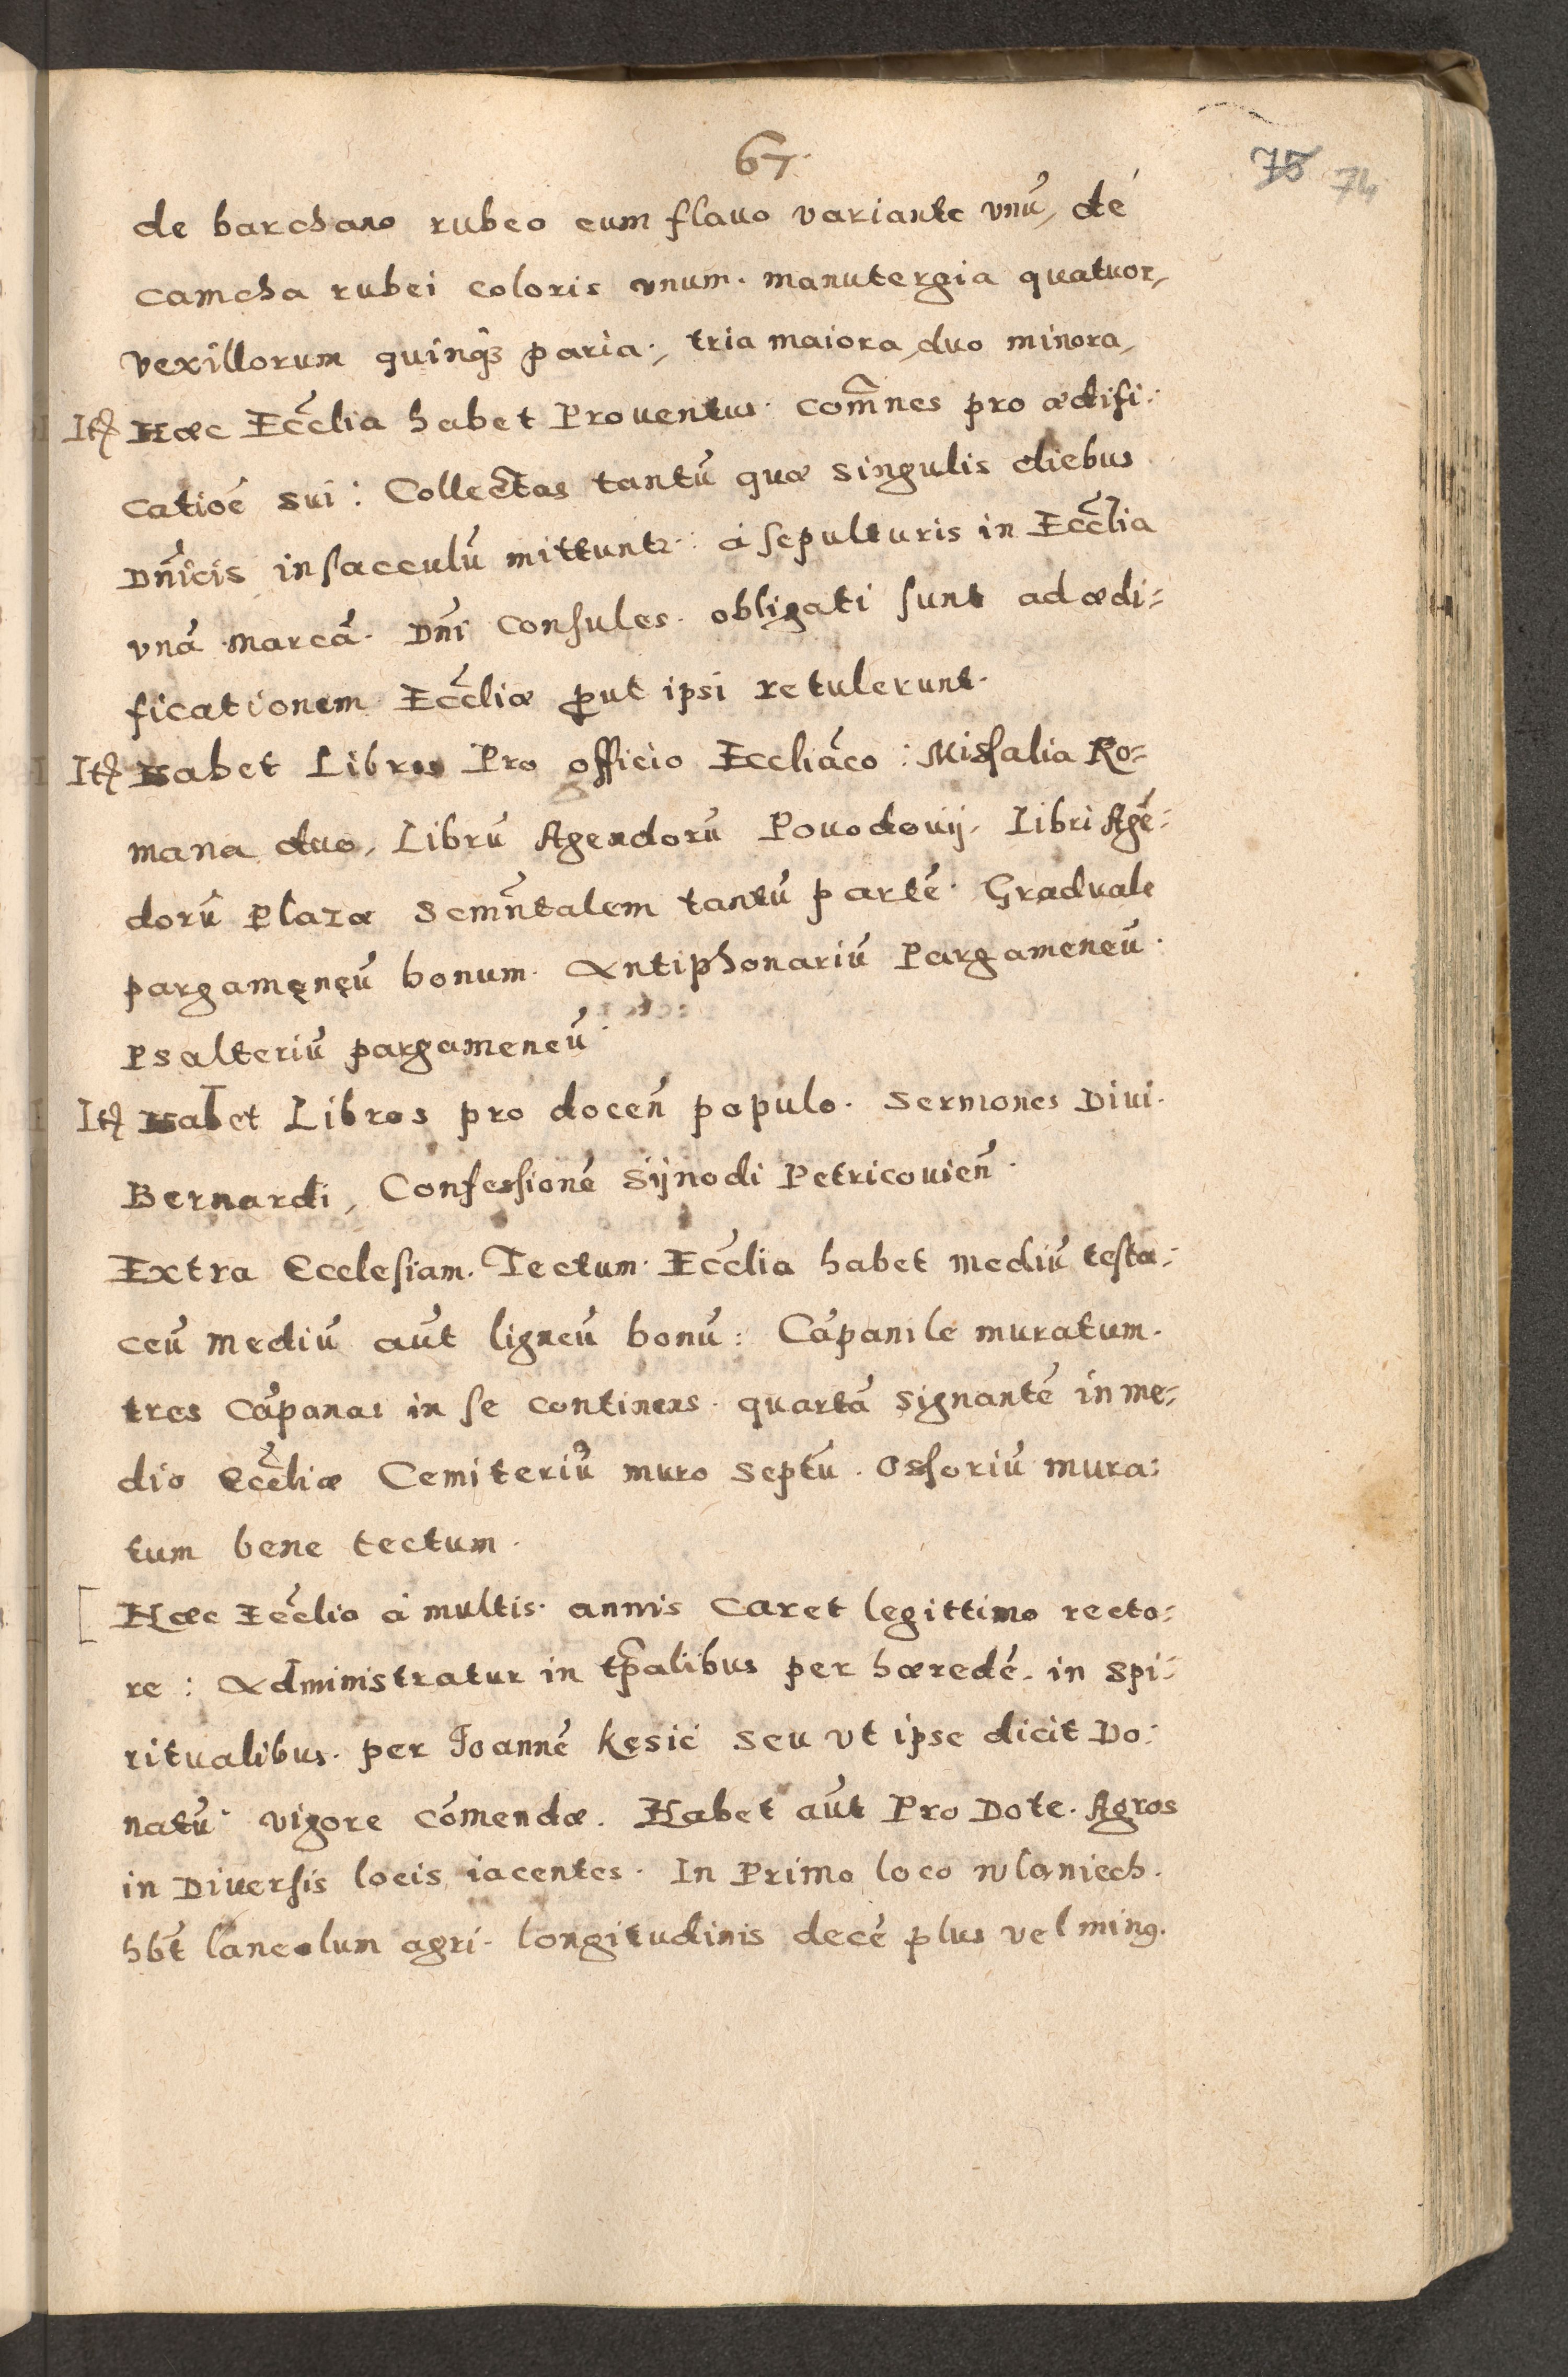 67.
75 74
de barchano rubeo cum flauo variante vnū, de
camcha rubei coloris vnum. manutergia quatuor,
vexillorum quinqꝫ paria., tria maiora, duo minora,
Itꝫ Hæc Eccl̃ia habet Prouentus. com̃nes pro ædifi:
catioē sui: Collectas tantū quæ singulis diebus
Dn̄icis in sacculū mittuntꝛ. à sepulturis in Eccl̃ia
vnā marcā. Dn̄i Consules. obligati sunt ad ædi:
ficationem Eccl̃iæ ꝓut ipsi retulerunt.
Itꝫ Habet Libros Pro officio Eccliāco: Missalia Ro:
mana duo, Librū Agendorū Pouodouij. Libri Agē:
dorū Plazæ Semn̄talem tantū partē. Graduale
pargamęnęū bonum. Antiphonariū Pargameneū.
Psalteriū pargameneū.
Itꝫ Habet Libros pro docen̄ populo. Sermones Diui.
Bernardi, Confessionē Sÿnodi Petricouien̄.
Extra Ecclesiam. Tectum. Eccl̃ia habet mediū testa:
ceū mediū aūt ligneū bonū: Cāpanile muratum.
tres Cāpanas in se continens. quartā signantē in me:
dio Eccl̃iæ Cemiteriū muro septū. Ossoriū mura:
tum bene tectum.
[ Hæc Eccl̃ia à multis. annis caret legittimo recto:
re: Administratur in tp̄alibus per hæredē. in spi:
ritualibus. per Joannē Kęsic seu vt ipse dicit Do:
natū. vigore cōmendæ. Habet aūt Pro Dote. Agros
in Diuersis locis iacentes. In Primo loco wlaniech.
hb̄t laneolum agri. longitudinis decē plus vel minꝰ.